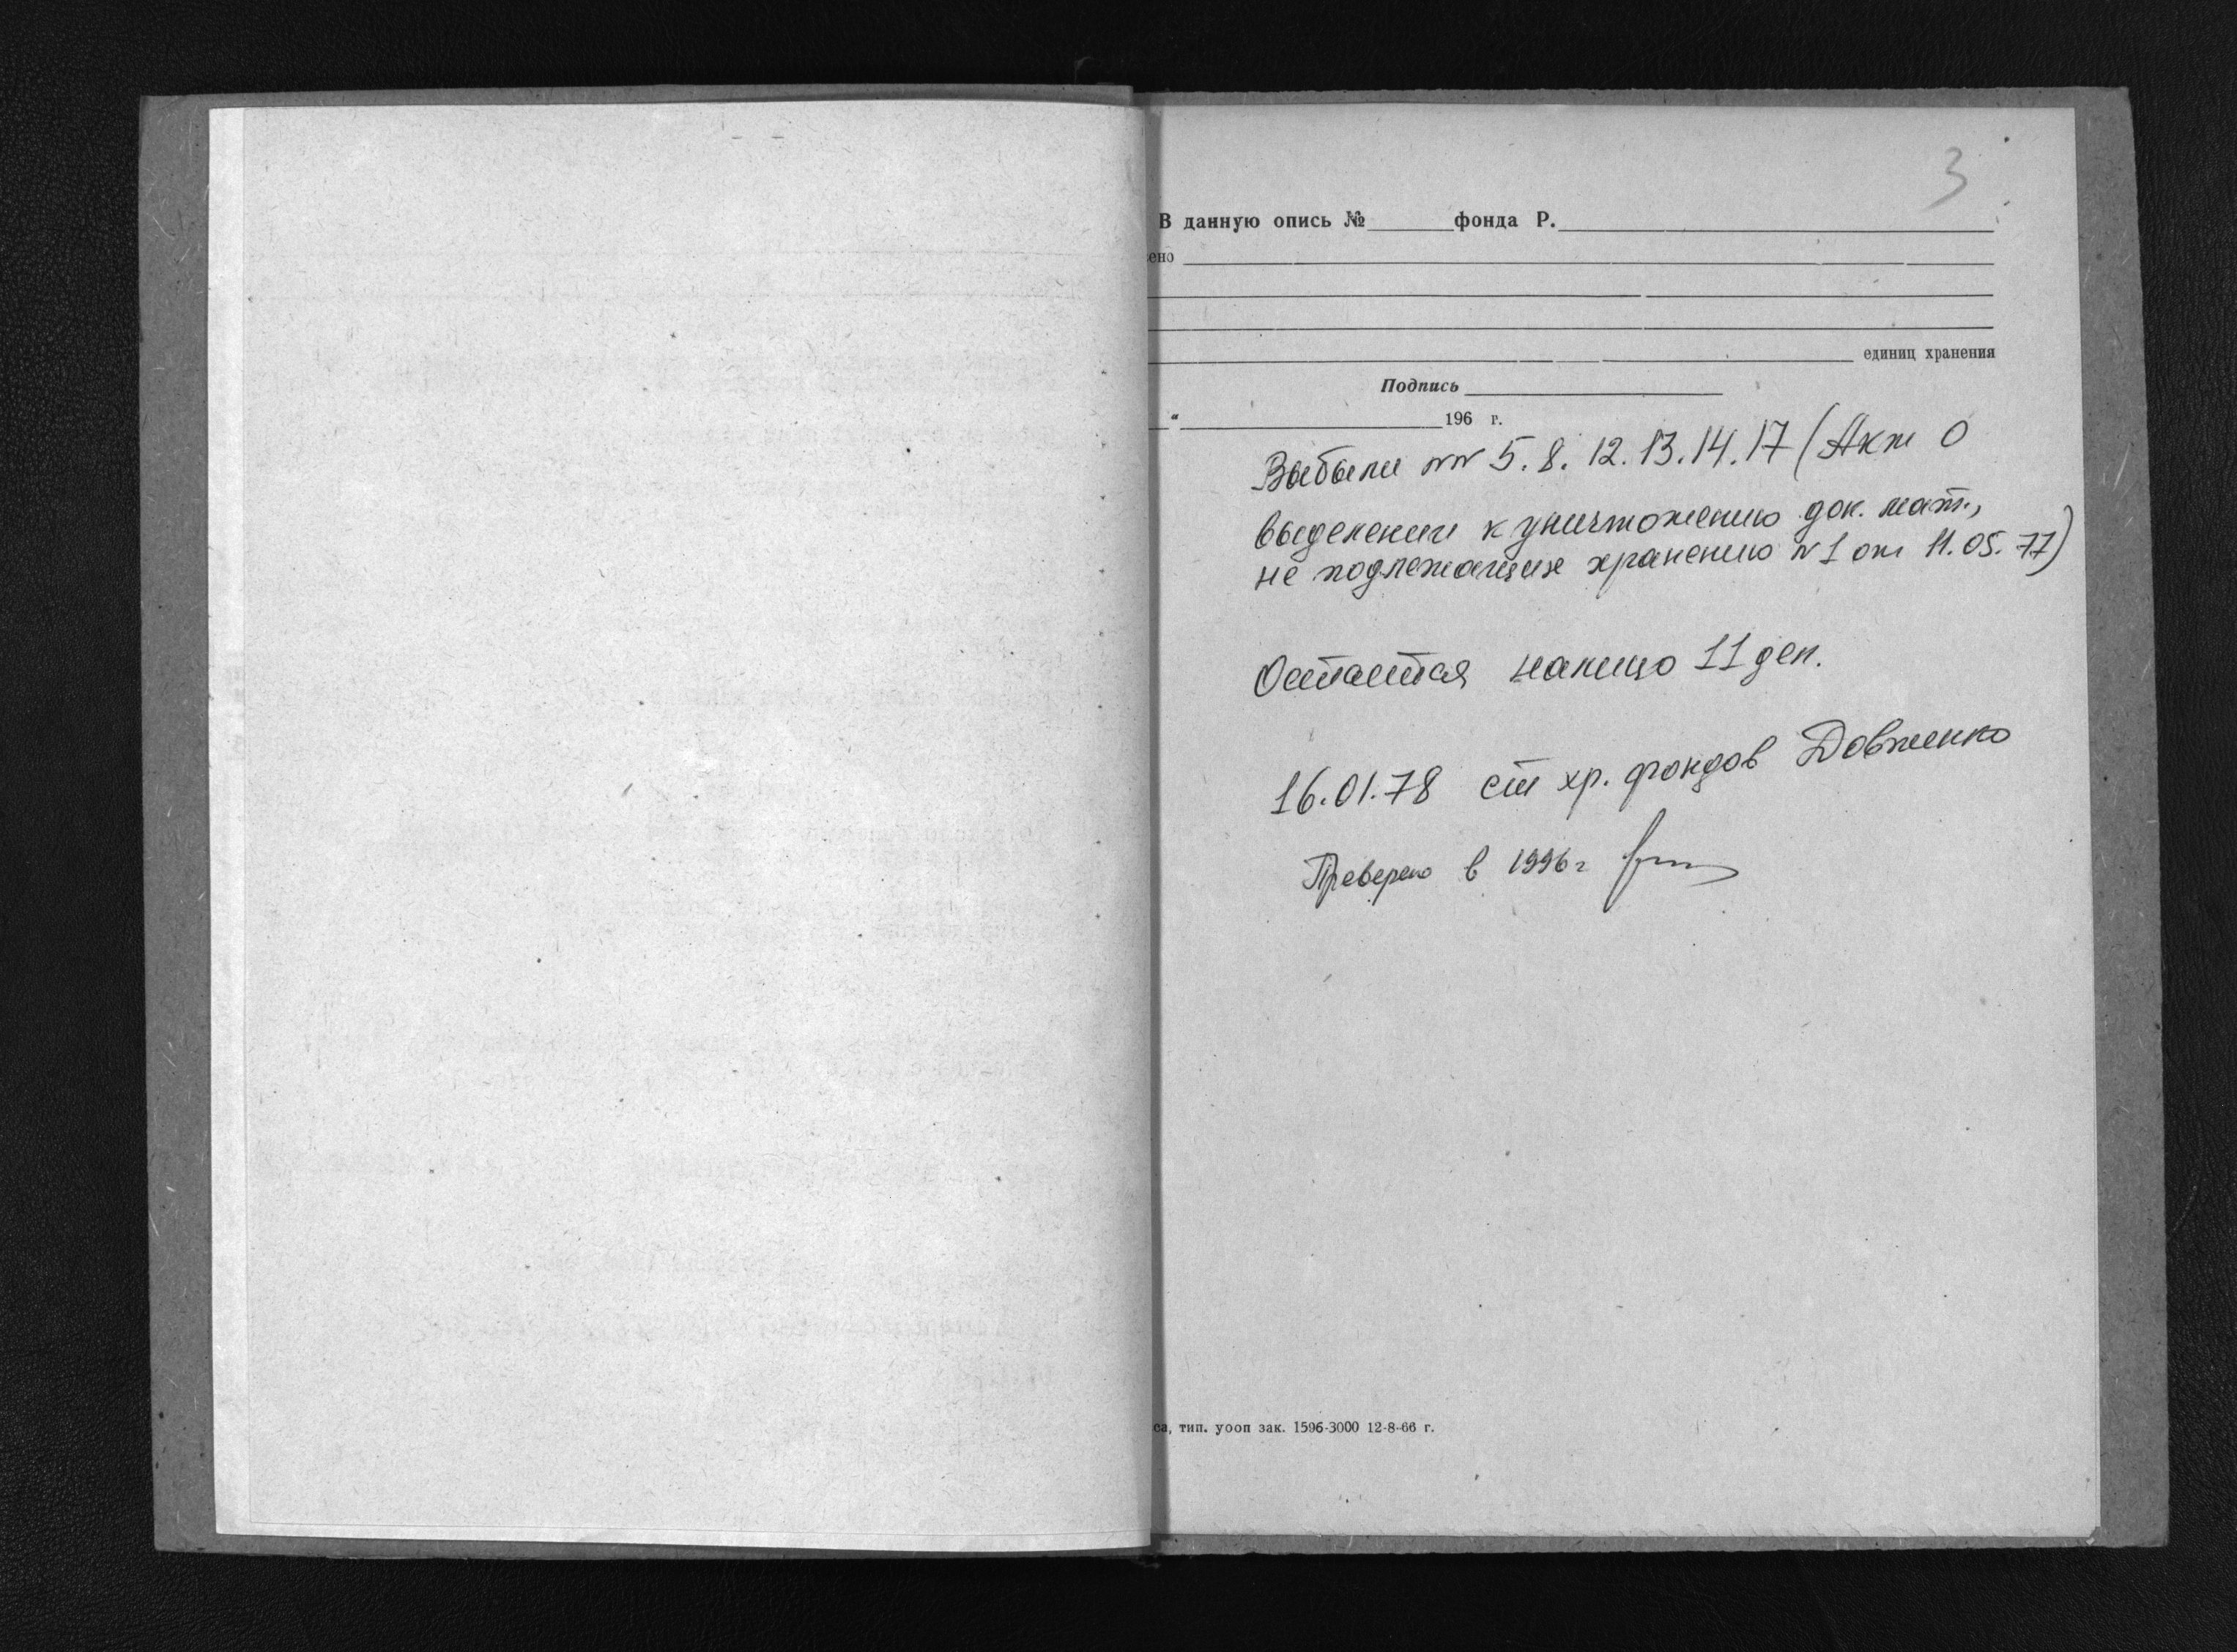 3
В данную опись №______фонда Р.______
ено
единиц хранения
Подпись
" 196 г.
Выбыли №№ 5. 8. 12. 13. 14. 17 (Акт О
выделении к уничтожению док. мат.,
не подлежащих хранению №1 от 11.05.77)
Остается налицо 11 дел.
16.01.78 ст хр. фондов Довженко
Проверено в 1996г
са, тип. уооп зак. 1596-3000 12-8-66 г.